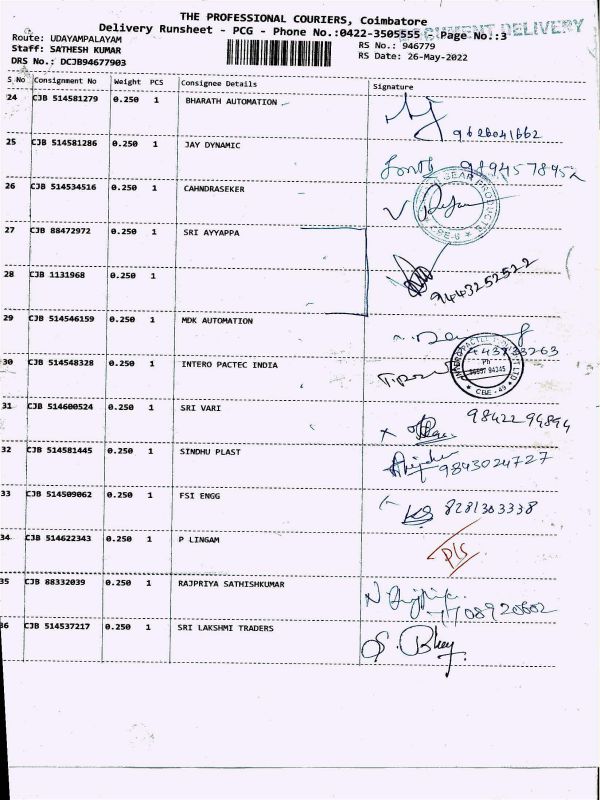 THE PROFESSIONAL COURIERS, Coimbatore
Delivery Runsheet - PCG - Phone No.:0422-3505555 Page No.:3
DOCUMENT DELIVERY
Route: UDAYAMPALAYAM
Staff: SATHESH KUMAR
DRS No.: DCJB94677903
RS No.: 946779
RS Date: 26-May-2022
S No Consignment No Weight PCS Consignee Details Signature
24 CJB 514581279 0.250 1 BHARATH AUTOMATION
9626041662
25 CJB 514581286 0.250 1 JAY DYNAMIC
9894578952
26 CJB 514534516 0.250 1 CAHNDRASEKER
GEAR PRODUCTS
CBE-6
27 CJB 88472972 0.250 1 SRI AYYAPPA
28 CJB 1131968 0.250 1
9443252522
29 CJB 514546159 0.250 1 MDK AUTOMATION
30 CJB 514548328 0.250 1 INTERO PACTEC INDIA
Ph
94345
CBE - 49
31 CJB 514600524 0.250 1 SRI VARI
9842294894
32 CJB 514581445 0.250 1 SINDHU PLAST
9843024727
33 CJB 514509062 0.250 1 FSI ENGG
8281303338
34 CJB 514622343 0.250 1 P LINGAM
35 CJB 88332039 0.250 1 RAJPRIYA SATHISHKUMAR
7708920602
36 CJB 514537217 0.250 1 SRI LAKSHMI TRADERS